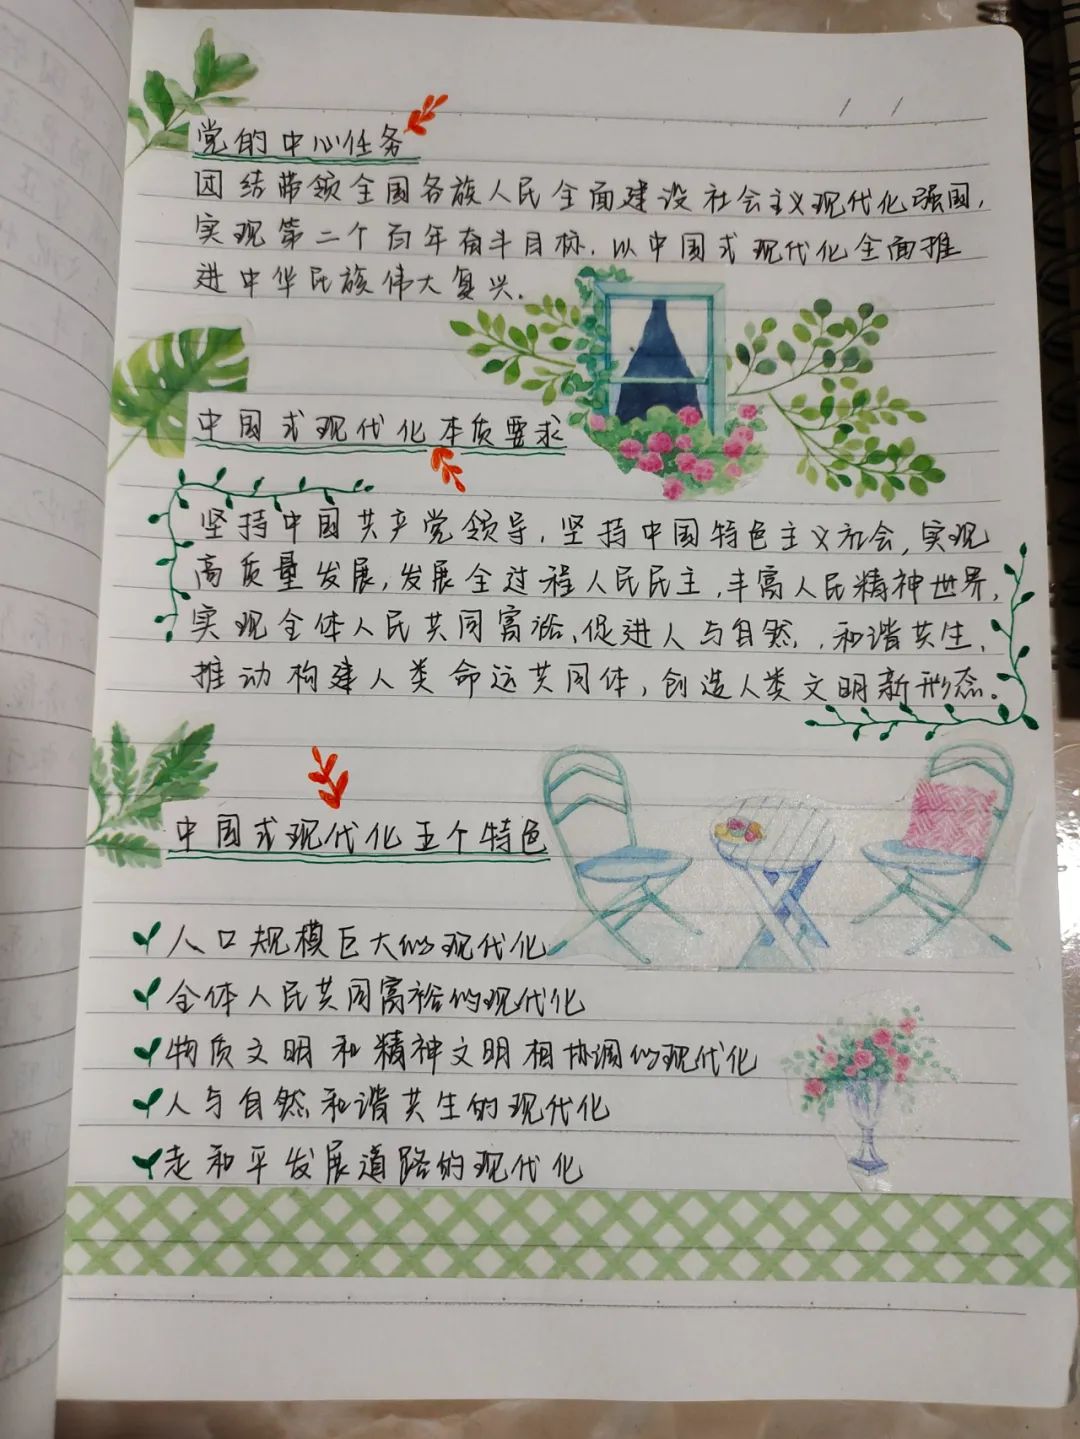 党的中心任务
团结带领全国各族人民全面建设社会主义现代化强国，
实现第二个百年奋斗目标，以中国式现代化全面推
进中华民族伟大复兴.
中国式现代化本质要求
坚持中国共产党领导，坚持中国特色主义社会，实现
高质量发展，发展全过程人民民主，丰富人民精神世界，
实现全体人民共同富裕，促进人与自然，和谐共生，
推动构建人类命运共同体，创造人类文明新形态。
中国式现代化五个特色
人口规模巨大的现代化
全体人民共同富裕的现代化
物质文明和精神文明相协调的现代化
人与自然和谐共生的现代化
走和平发展道路的现代化